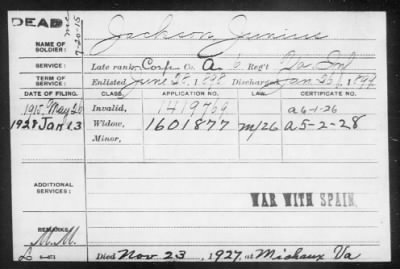 DEAD
nic
7-20-15
Jackson, Junius
NAME OF SOLDIER:
SERVICE: Late rank, Corp Co. A 6 Reg't Va Inf
TERM OF SERVICE: Enlisted June 28, 1898 Discharged Jan 26, 1899
DATE OF FILING. CLASS. APPLICATION NO. LAW. CERTIFICATE NO.
1915 May 20 Invalid, 1419769 a6-1-26
1928 Jan 13 Widow, 1601877 m/26 a5-2-28
Minor,
ADDITIONAL SERVICES:
WAR WITH SPAIN.
REMARKS:
M.M.
Died Nov 23, 1927, at Michaux Va